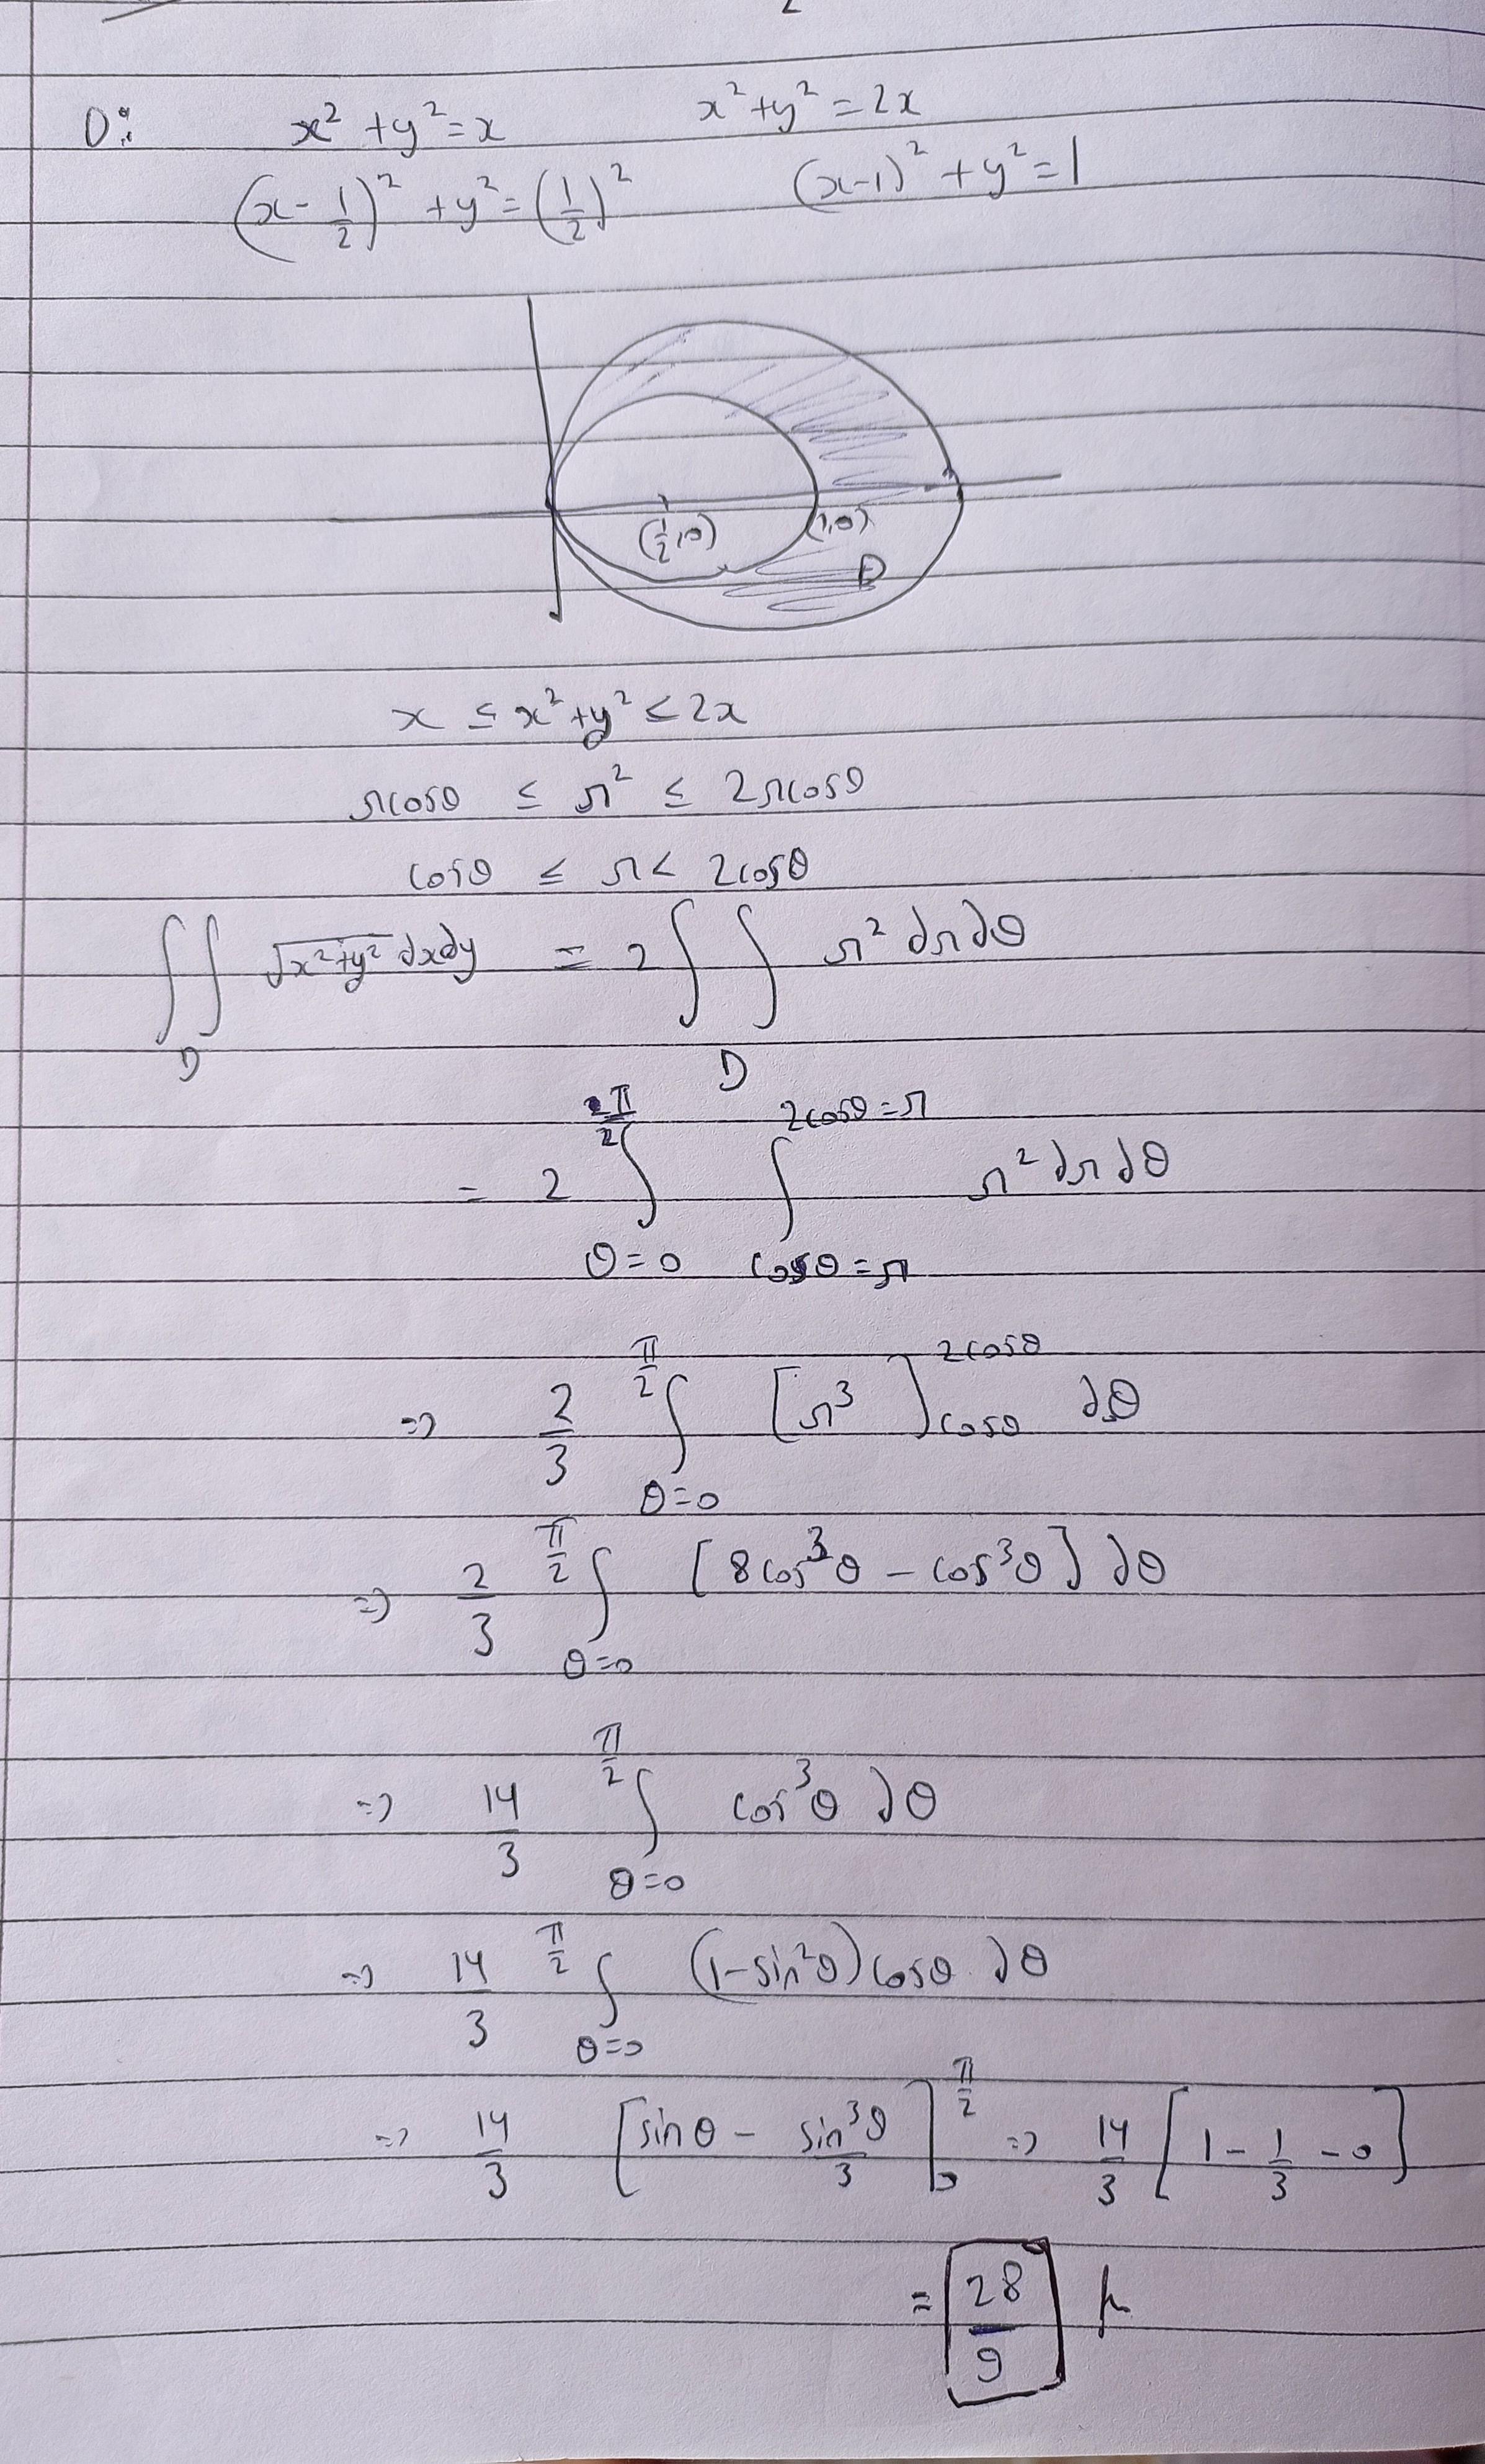 D: x² + y² = x x² + y² = 2x
(x - 1/2)² + y² = (1/2)² (x-1)² + y² = 1
(1/2, 0) (1,0)
D
x ≤ x² + y² ≤ 2x
rcosθ ≤ r² ≤ 2rcosθ
cosθ ≤ r < 2cosθ
∬_D √x²+y² dxdy = 2 ∬_D r² dr dθ
= 2 ∫_{θ=0}^{π/2} ∫_{cosθ=r}^{2cosθ=r} r² dr dθ
⇒ 2/3 ∫_{θ=0}^{π/2} [r³]_{cosθ}^{2cosθ} dθ
⇒ 2/3 ∫_{θ=0}^{π/2} [8cos³θ - cos³θ] dθ
⇒ 14/3 ∫_{θ=0}^{π/2} cos³θ dθ
⇒ 14/3 ∫_{θ=0}^{π/2} (1-sin²θ)cosθ dθ
⇒ 14/3 [sinθ - sin³θ/3]_0^{π/2} ⇒ 14/3 [1 - 1/3 - 0]
= 28/9